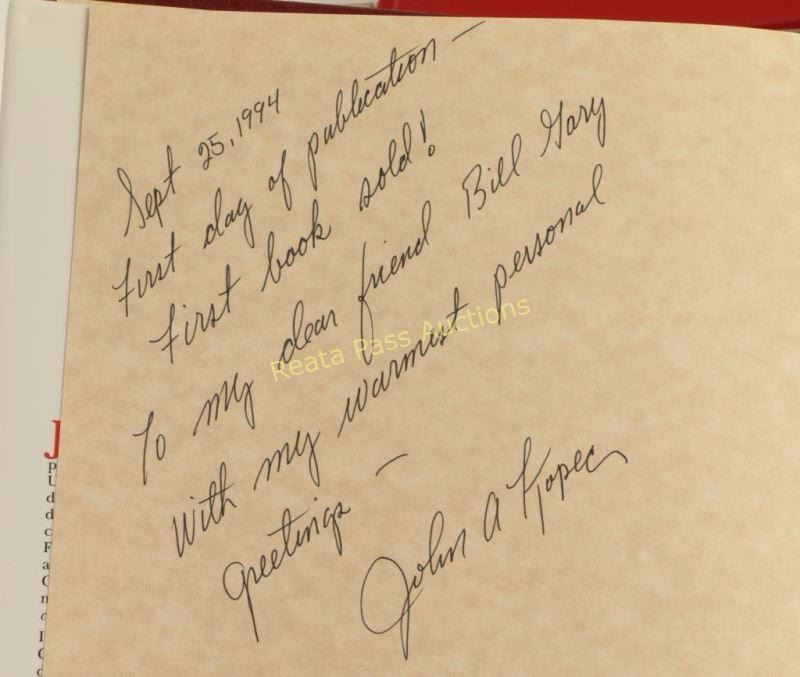 Sept 25, 1994
First day of publication —
First book sold!
To my dear friend Bill Gary
with my warmest personal
greetings —
John A Kopec
Reata Pass Auctions
J
P
U
d
d
c
F
a
C
n
a
I
C
c